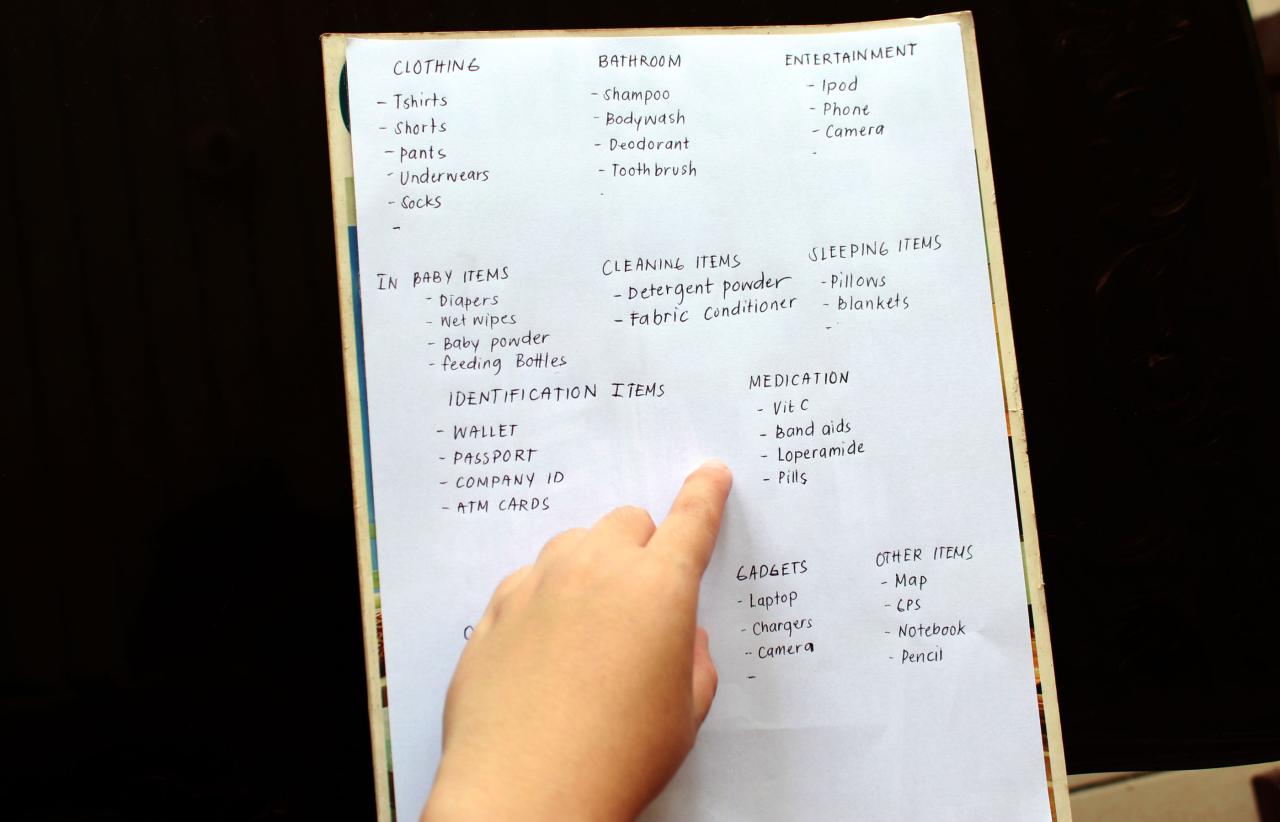 CLOTHING
- Tshirts
- Shorts
- pants
- Underwears
- Socks
-
BATHROOM
- Shampoo
- Bodywash
- Deodorant
- Toothbrush
-
ENTERTAINMENT
- Ipod
- Phone
- Camera
-
IN BABY ITEMS
- Diapers
- Wet wipes
- Baby powder
- feeding Bottles
CLEANING ITEMS
- Detergent powder
- Fabric Conditioner
SLEEPING ITEMS
- Pillows
- Blankets
-
IDENTIFICATION ITEMS
- WALLET
- PASSPORT
- COMPANY ID
- ATM CARDS
MEDICATION
- Vit C
- Band aids
- Loperamide
- Pills
GADGETS
- Laptop
- Chargers
- Camera
-
OTHER ITEMS
- Map
- GPS
- Notebook
- Pencil